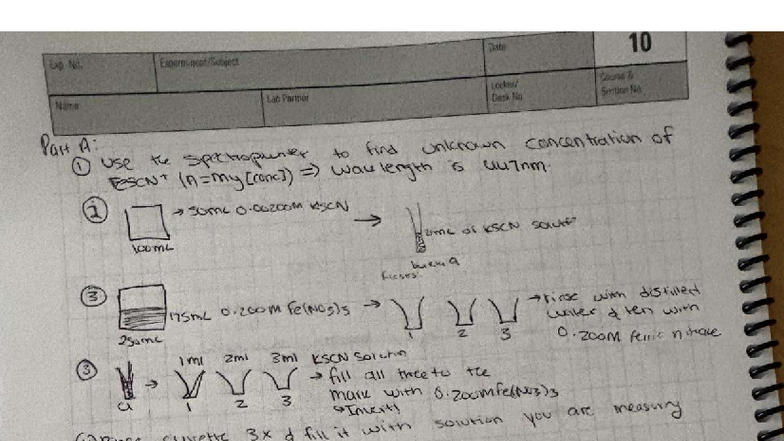 Exp. No.
Experiment/Subject
Date
10
Name
Lab Partner
Locker/
Desk No.
Course &
Section No.
Part A:
① Use the to find unknown concentration of
FeSCN+ ⇒ wavelength is 447nm.
② → 50mL 0.00200M KSCN →
100mL
mL of KSCN
③ 175mL 0.200M Fe(NO3)3 → → rinse with distilled
250mL
1 2 3
water & then with
0.200M ferric nitrate
③ → 1ml 2ml 3ml KSCN solution
→ fill all three to the
1 2 3
mark with 0.200M Fe(NO3)3
↳ Invert
cuvette 3x & fill it with solution you are measuring